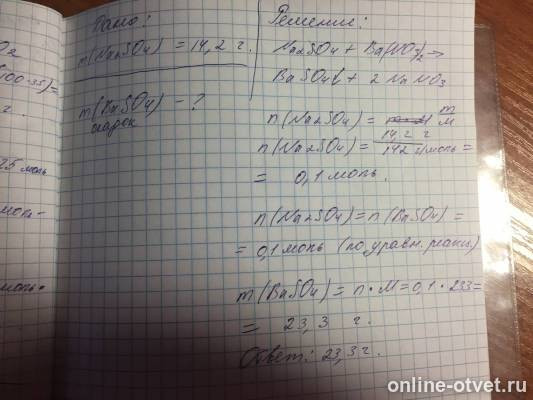 Дано:
m(Na₂SO₄) = 14,2 г.
m(BaSO₄) - ?
осадок
Решение:
Na₂SO₄ + Ba(NO₃)₂ →
BaSO₄↓ + 2 NaNO₃
n(Na₂SO₄) = m/M
n(Na₂SO₄) = 14,2 г / 142 г/моль =
= 0,1 моль.
n(Na₂SO₄) = n(BaSO₄) =
= 0,1 моль (по уравн. реакц.)
m(BaSO₄) = n · M = 0,1 · 233 =
= 23,3 г.
Ответ: 23,3 г.
(100-35) =
г.
25 моль
моль-
моль.
online-otvet.ru